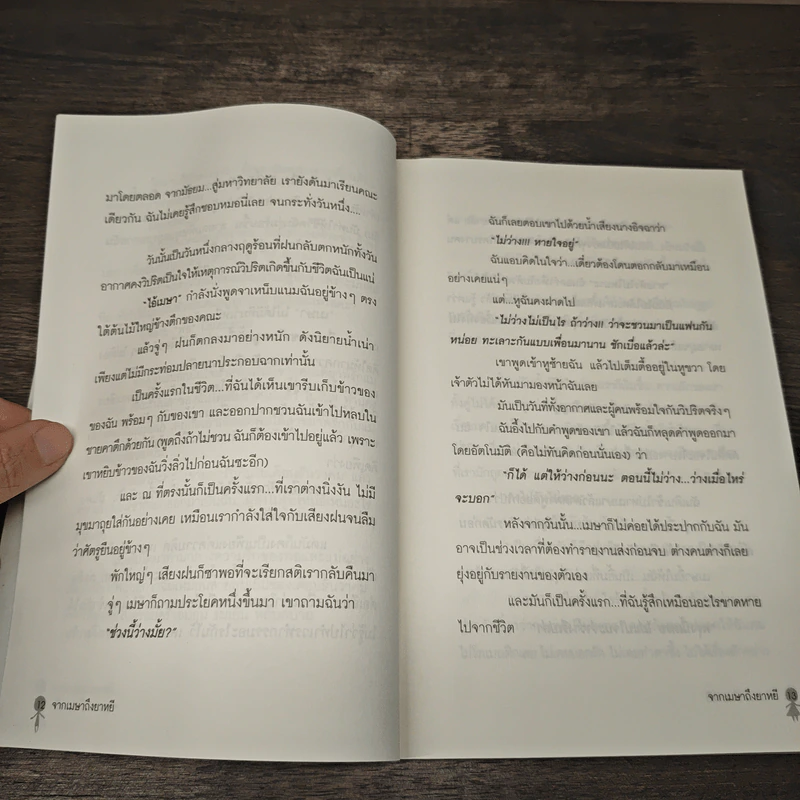 มาโดยตลอด จากมัธยม...สู่มหาวิทยาลัย เรายังดันมาเรียนคณะ
เดียวกัน ฉันไม่เคยรู้สึกชอบหมอนี่เลย จนกระทั่งวันหนึ่ง....
วันนั้นเป็นวันหนึ่งกลางฤดูร้อนที่ฝนกลับตกหนักทั้งวัน
อากาศคงวิปริตเป็นใจให้เหตุการณ์วิปริตเกิดขึ้นกับชีวิตฉันเป็นแน่
"ไอ้เมษา" กำลังนั่งพูดจาเหน็บแนมฉันอยู่ข้างๆ ตรง
ใต้ต้นไม้ใหญ่ข้างตึกของคณะ
แล้วจู่ๆ ฝนก็ตกลงมาอย่างหนัก ดังนิยายน้ำเน่า
เพียงแต่ไม่มีกระท่อมปลายนาประกอบฉากเท่านั้น
เป็นครั้งแรกในชีวิต...ที่ฉันได้เห็นเขารีบเก็บข้าวของ
ของฉัน พร้อมๆ กับของเขา และออกปากชวนฉันเข้าไปหลบใน
ชายคาตึกด้วยกัน (พูดถึงถ้าไม่ชวน ฉันก็ต้องเข้าไปอยู่แล้ว เพราะ
เขาหยิบข้าวของฉันวิ่งลิ่วไปก่อนฉันซะอีก)
และ ณ ที่ตรงนั้นก็เป็นครั้งแรก...ที่เราต่างนิ่งงัน ไม่มี
มุขมาถุยใส่กันอย่างเคย เหมือนเรากำลังใส่ใจกับเสียงฝนจนลืม
ว่าศัตรูยืนอยู่ข้างๆ
พักใหญ่ๆ เสียงฝนก็ซาพอที่จะเรียกสติเรากลับคืนมา
จู่ๆ เมษาก็ถามประโยคหนึ่งขึ้นมา เขาถามฉันว่า
"ช่วงนี้ว่างมั้ย?"
12 จากเมษาถึงยาหยี
ฉันก็เลยตอบเขาไปด้วยน้ำเสียงนางอิจฉาว่า
"ไม่ว่าง!!! หายใจอยู่"
ฉันแอบคิดในใจว่า...เดี๋ยวต้องโดนตอกกลับมาเหมือน
อย่างเคยแน่ๆ
แต่...หูฉันคงฝาดไป
"ไม่ว่างไม่เป็นไร ถ้าว่าง!! ว่าจะชวนมาเป็นแฟนกัน
หน่อย ทะเลาะกันแบบเพื่อนมานาน ชักเบื่อแล้วล่ะ"
เขาพูดเข้าหูซ้ายฉัน แล้วไปเต็มตื้ออยู่ในหูขวา โดย
เจ้าตัวไม่ได้หันมามองหน้าฉันเลย
มันเป็นวันที่ทั้งอากาศและผู้คนพร้อมใจกันวิปริตจริงๆ
ฉันอึ้งไปกับคำพูดของเขา แล้วฉันก็หลุดคำพูดออกมา
โดยอัตโนมัติ (คือไม่ทันคิดก่อนนั่นเอง) ว่า
"ก็ได้ แต่ให้ว่างก่อนนะ ตอนนี้ไม่ว่าง...ว่างเมื่อไหร่
จะบอก"
หลังจากวันนั้น...เมษาก็ไม่ค่อยได้ประปากกับฉัน มัน
อาจเป็นช่วงเวลาที่ต้องทำรายงานส่งก่อนจบ ต่างคนต่างก็เลย
ยุ่งอยู่กับรายงานของตัวเอง
และมันก็เป็นครั้งแรก...ที่ฉันรู้สึกเหมือนอะไรขาดหาย
ไปจากชีวิต
จากเมษาถึงยาหยี 13